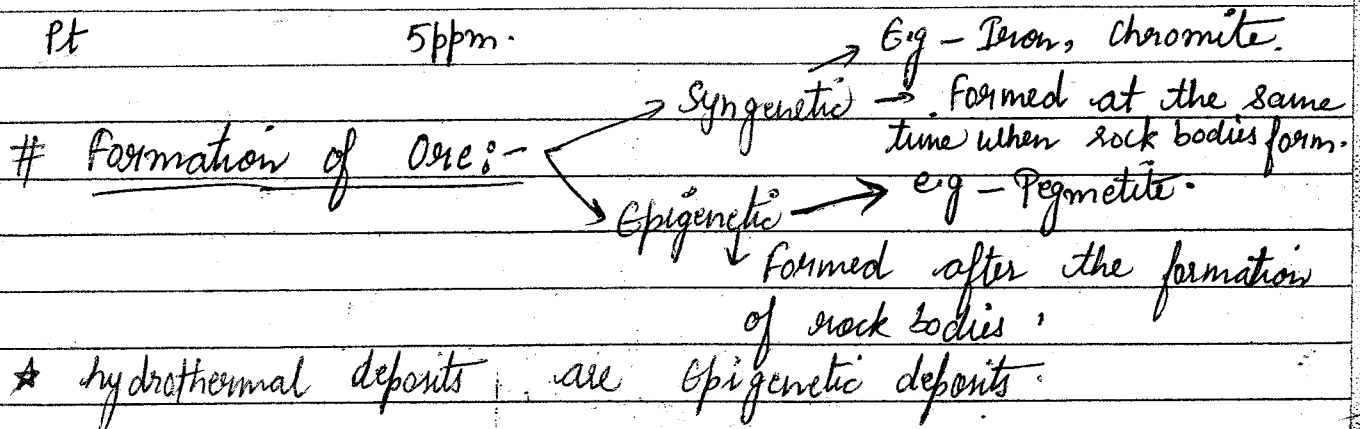 Pt 5ppm. → E.g – Iron, Chromite.
→ Syngenetic → Formed at the same
# Formation of Ore:- time when rock bodies form.
→ Epigenetic → e.g – Pegmetite.
↓ Formed after the formation
of rock bodies.
☆ hydrothermal deposits are Epigenetic deposits.